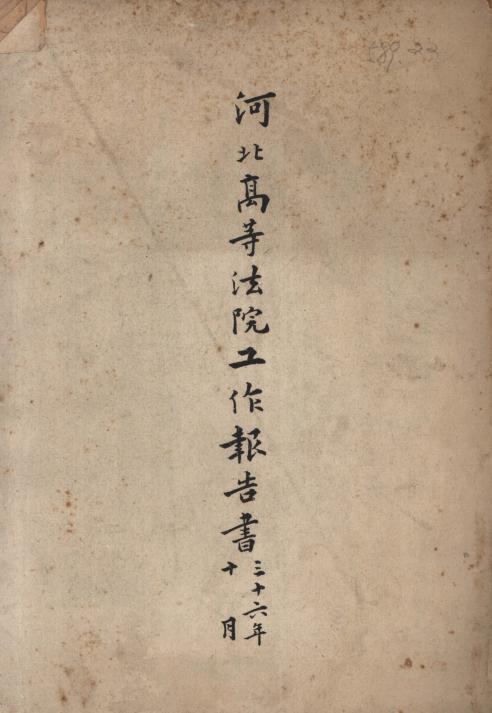 河北高等法院工作報告書
三十六年
十月
589.22